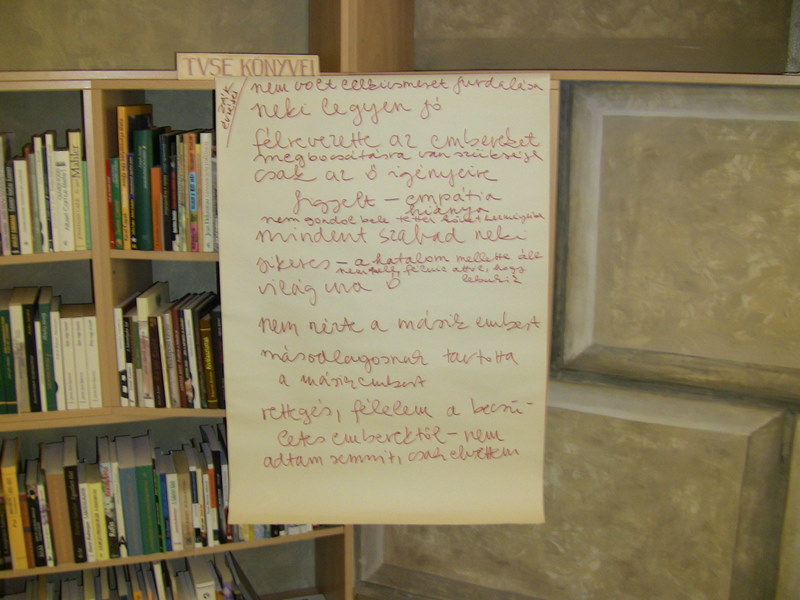 TVSE KÖNYVEI
nem volt lelkiismeret furdalása
neki legyen jó
félrevezette az embereket
megbocsátásra van szüksége
csak az ő igényeire
figyelt - empátia
hiánya
nem gondol bele tettei következményeibe
mindent szabad neki
sikeres - a hatalom mellette áll
nem kell félnie attól, hogy
lebukik
világ ura ő
nem nézte a másik embert
másodlagosnak tartotta
a másik embert
rettegés, félelem a becsü-
letes emberektől - nem
adtam semmit, csak elvettem
Mahler